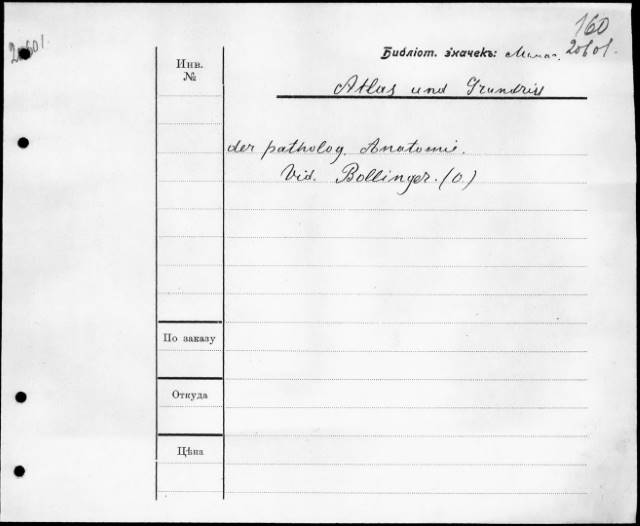 160
20601.
20601.
Библіот. значекъ:
Инв.
№
Atlas und Grundriss
der patholog. Anatomie.
Vid. Bollinger. (O.)
По заказу
Откуда
Цѣна